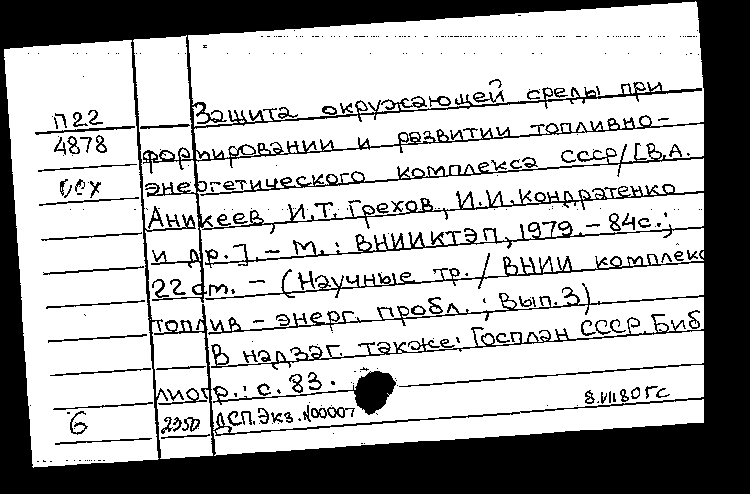 П22 Защита окружающей среды при
4878 формировании и развитии топливно-
энергетического комплекса СССР/[В.А.
Аникеев, И.Т. Грехов, И.И. Кондратенко
и др.]. - М. : ВНИИКТЭП, 1979. - 84с.;
22 см. - (Научные тр. / ВНИИ комплекс
топлив - энерг. пробл. ; Вып. 3)
В надзаг. также: Госплан СССР. Биб
лиогр.: с. 83.
6 2350 ДСП. Экз. №00007